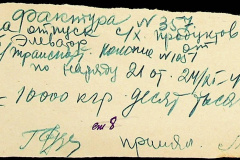 фактура № 357
на отпуск с/х. продуктов
Эльватор от
транспорт. колонне № 1057
по наряду 21 от 24/XI-4
= 10000 кгр. десят тыся
от 8
принял